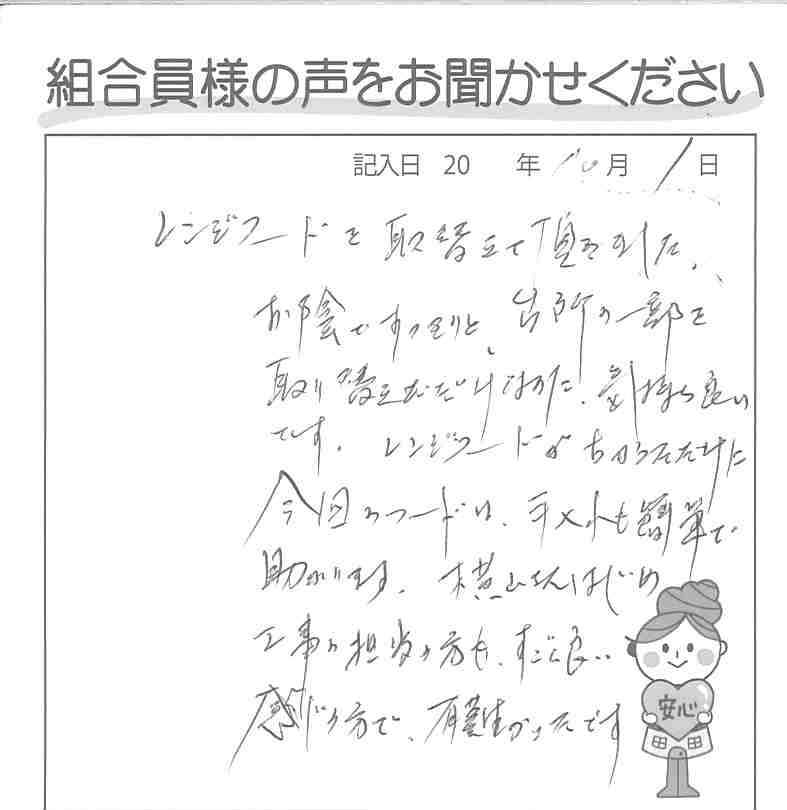 組合員様の声をお聞かせください
記入日 20 年 10月 1日
レンジフードを取替えて頂きました。
お陰ですっきりと、台所の一部を
取り替えただけなのに、気持ち良い
です。レンジフードが
今回のフードは、手入れも簡単で
助かります。横山さんはじめ
工事の担当の方も、すごく良い
感じの方で、有難かったです
安心